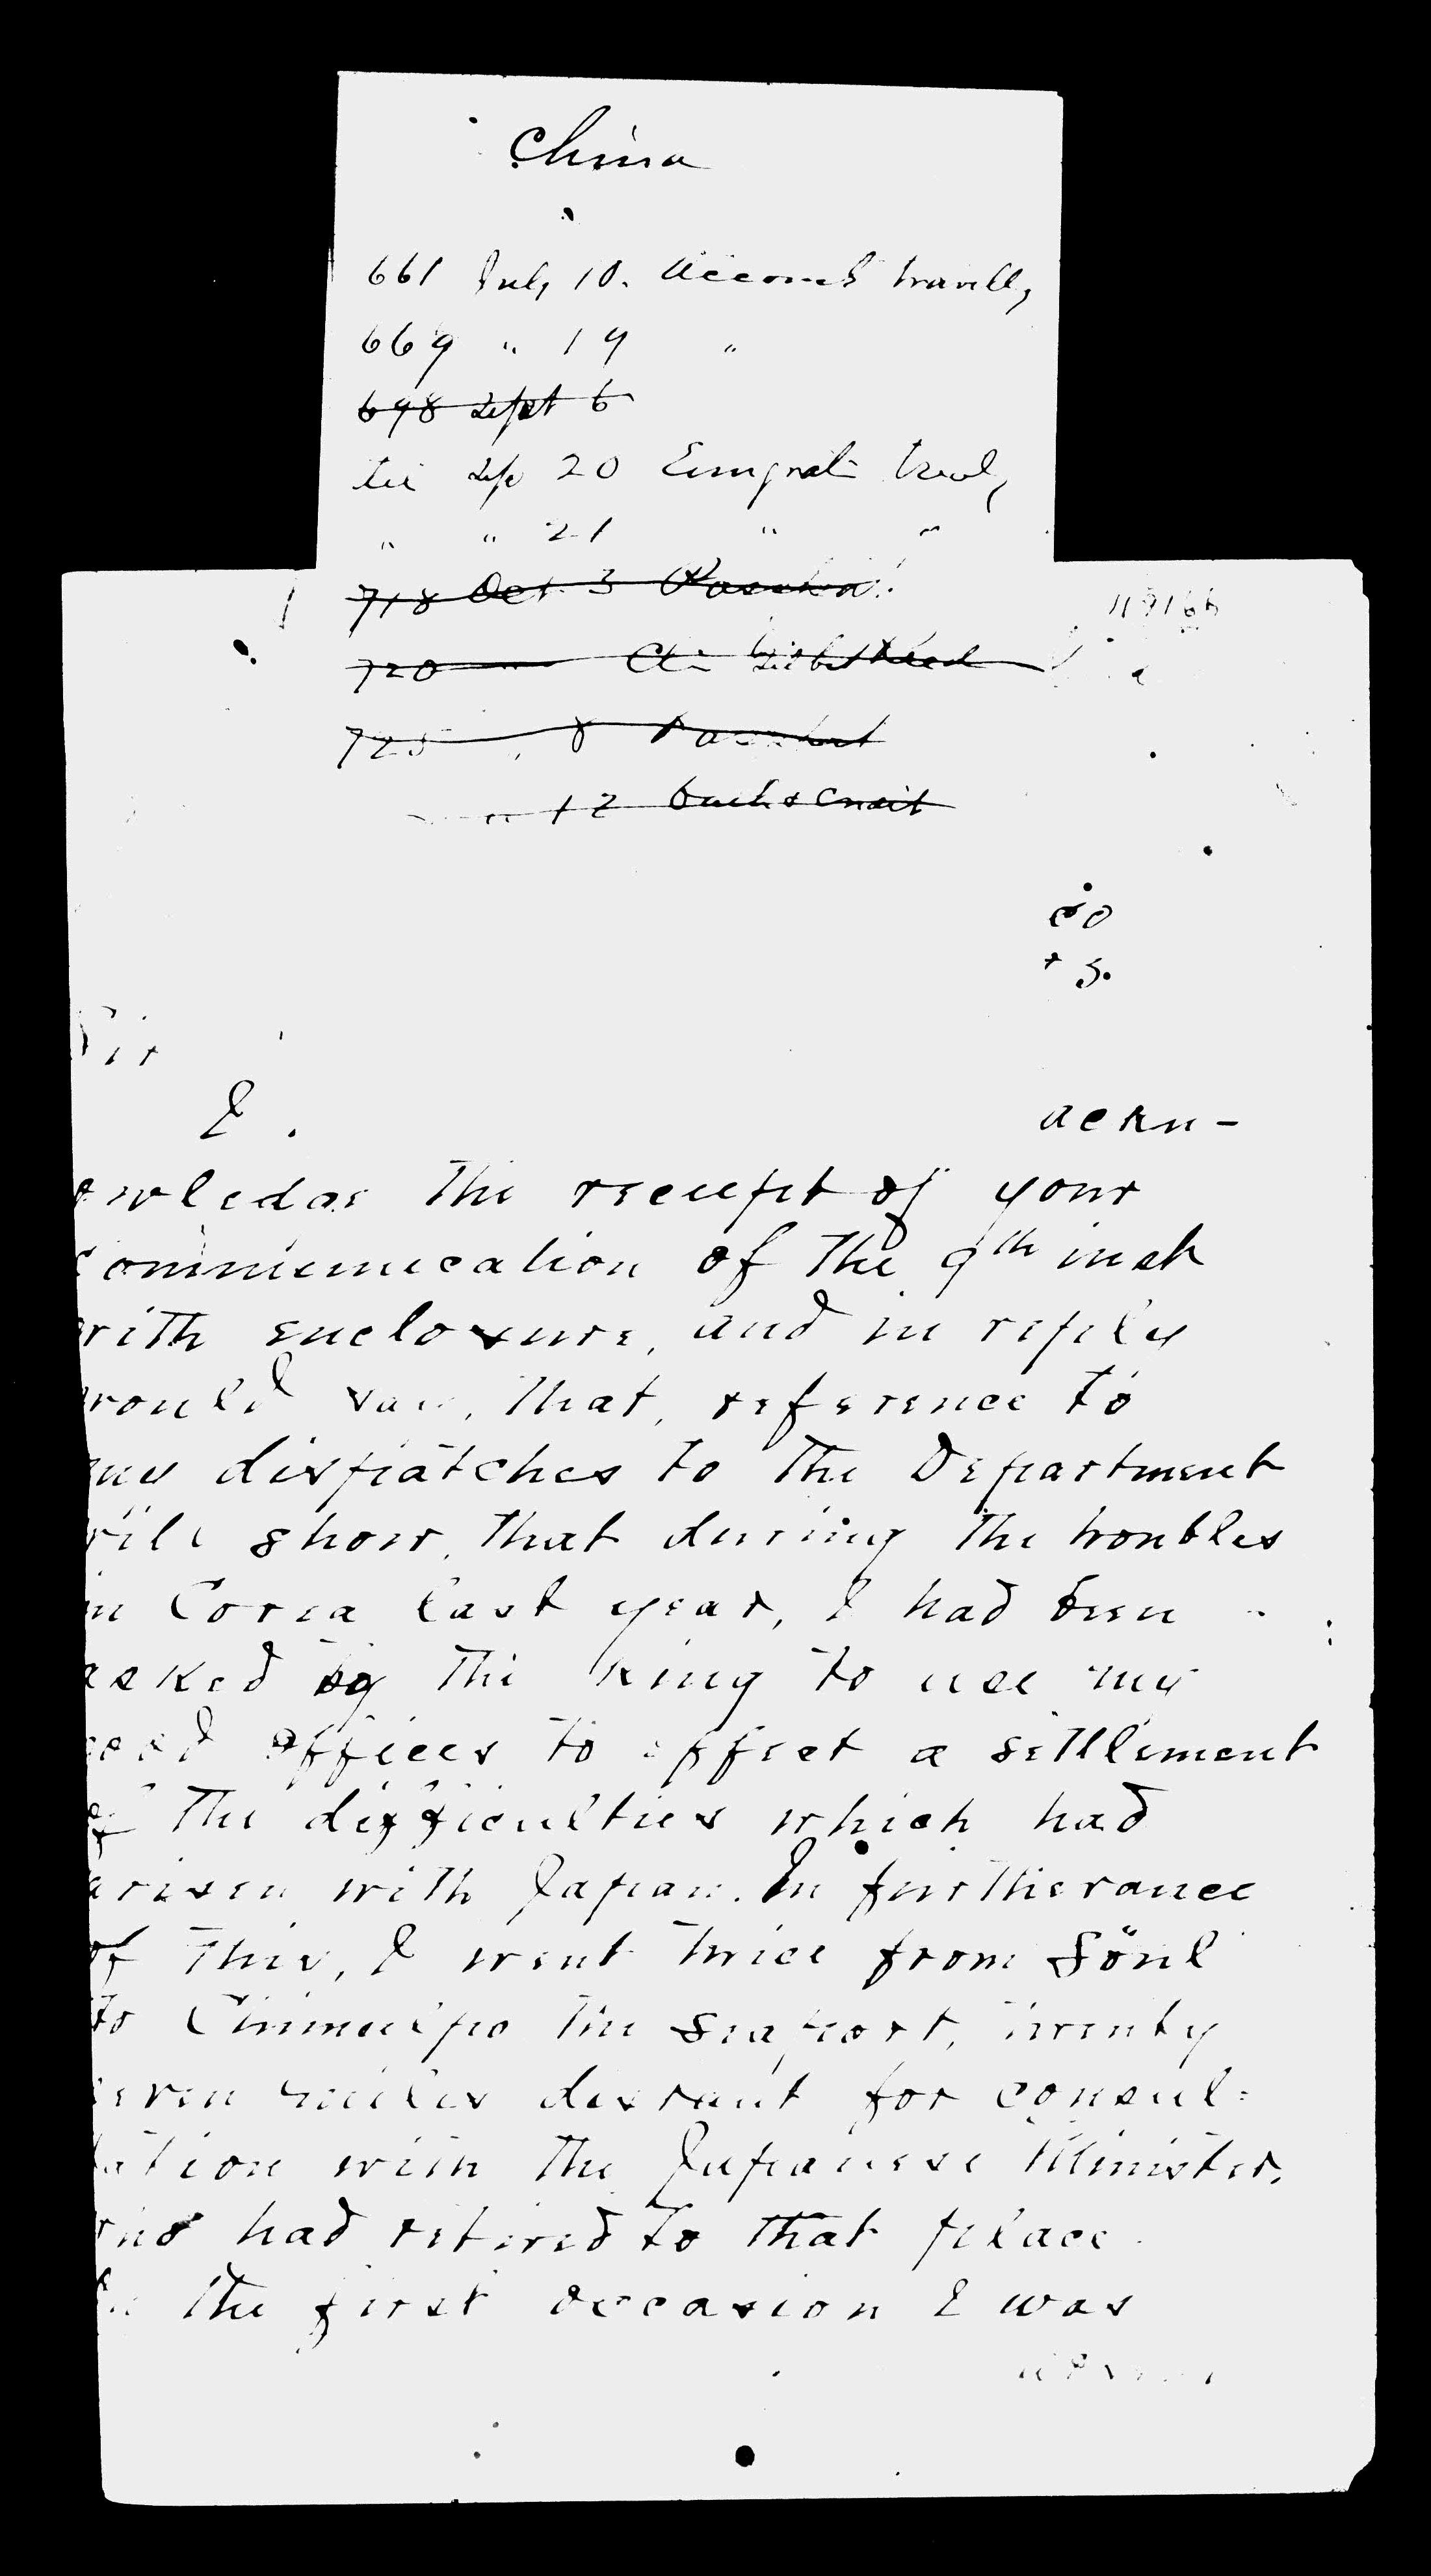 China
661 July 10. Accounts travell,
669 " 19 "
698 Sept 6
tel Sep 20 Emigrati
" " 21 " "
718 Oct. 3
720
725 8
" 12
Sir
I ackn-
owledge the receipt of your
communication of the 9th inst
with enclosure, and in reply
would say, that, reference to
my dispatches to the Department
will show, that during the troubles
in Corea last year, I had been
asked by the King to use my
good offices to effect a settlement
of the difficulties which had
arisen with Japan. In furtherance
of this, I went twice from Söul
to Chimulpo the seaport, twenty
seven miles distant for consul=
tation with the Japanese Minister,
who had retired to that place.
On the first occasion I was